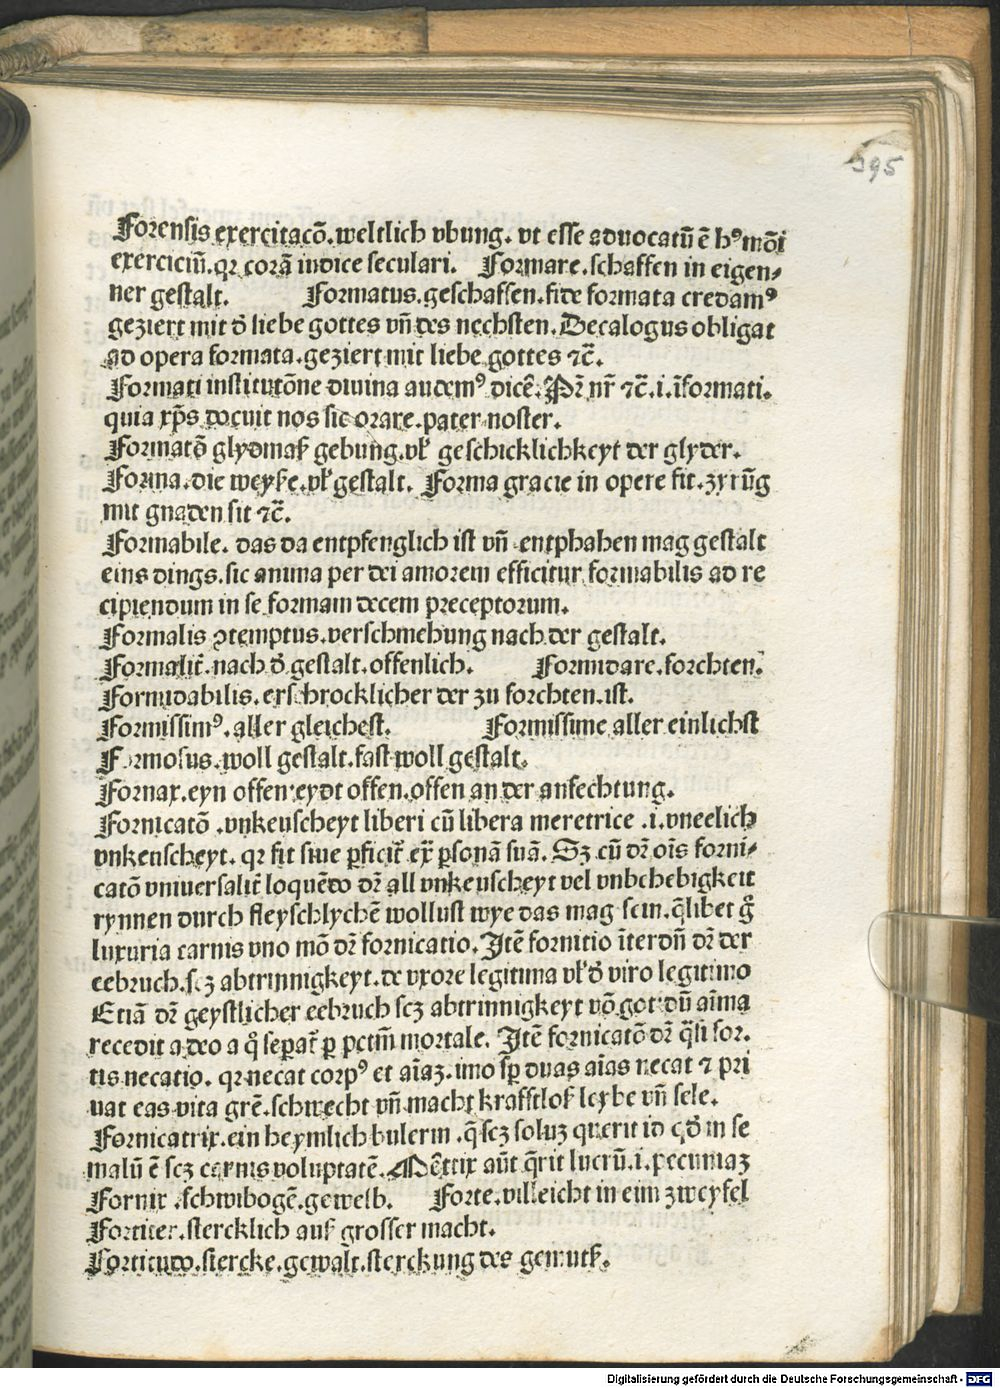 395
Forensis exercitacō.weltlich vbung. vt esse aduocatū ē hꝰ mōi
exerciciū.qꝛ corā iudice seculari. Formare.schaffen in eigen⸗
ner gestalt. Formatus.geschaffen.fide formata credamꝰ
geziert mit ď liebe gottes vñ des nechsten. Decalogus obligat
ad opera formata.geziert mit liebe gottes ⁊c̄.
Formati institutōne diuina audemꝰ dicē. Pr̄ nr̄ ⁊c̄.i.īformati.
quia xp̄s docuit nos sic orare.pater noster.
Formatō glydmaß gebung.vľ geschicklichkeyt der glyder.
Forma.die weyße.vľ gestalt. Forma gracie in opere fit.zyrūg
mit gnaden sit ⁊c̄.
Formabile. das da entpfenglich ist vñ entphahen mag gestalt
eins dings.sic anima per dei amorem efficitur formabilis ad re
cipiendum in se formam decem preceptorum.
Formalis ꝯtemptus.verschmehung nach der gestalt.
Formalit̄.nach ď gestalt.offenlich. Formidare.forchten.
Formidabilis.erschrocklicher der zu forchten.ist.
Formissimꝰ.aller gleichest. Formissime aller einlichst
Formosus.woll gestalt.fast woll gestalt.
Fornax.eyn offen.eydt offen.offen an der anfechtung.
Fornicatō .vnkeuscheyt liberi cū libera meretrice .i.vneelich
vnkeuscheyt. qꝛ fit siue ꝑficit̄ ex̄ ꝑsonā suā. Sz cū dr̄ oīs forni⸗
catō vniuersalit̄ loquēdo dr̄ all vnkeuscheyt vel vnbehebigkeit
rynnen durch fleyschlychē wollust wye das mag sein.q̄libet g̊
luxuria carnis vno mō dr̄ fornicatio. Itē fornitio īterdū dr̄ der
eebruch.scz abtrinnigkeyt.de vxore legitima vľ ď viro legitimo
Etiā dr̄ geystlicher eebruch scz abtrinnigkeyt vō got dū aīma
recedit a deo a q̊ seꝑat̄ ꝑ pctm̄ mortale. Itē fornicatō dr̄ q̄si for.
tis necatio. qꝛ necat corpꝰ et aīaz.imo sꝑ duas aīas necat ⁊ pri
uat eas vita grē.schwecht vñ macht krafftloß leybe vñ sele.
Fornicatrix.ein heymlich bulerin .q̄ scz soluz querit id qď in se
malū ē scz carnis voluptatē. Mēttix aūt q̄rit lucrū.i.pecuniaz
Fornix .schwibogē.gewelb. Forte.villeicht in eim zweyfel
Fortiter.stercklich auß grosser macht.
Fortitudo.stercke.gewalt.sterckung des gemutß.
Digitalisierung gefördert durch die Deutsche Forschungsgemeinschaft - DFG